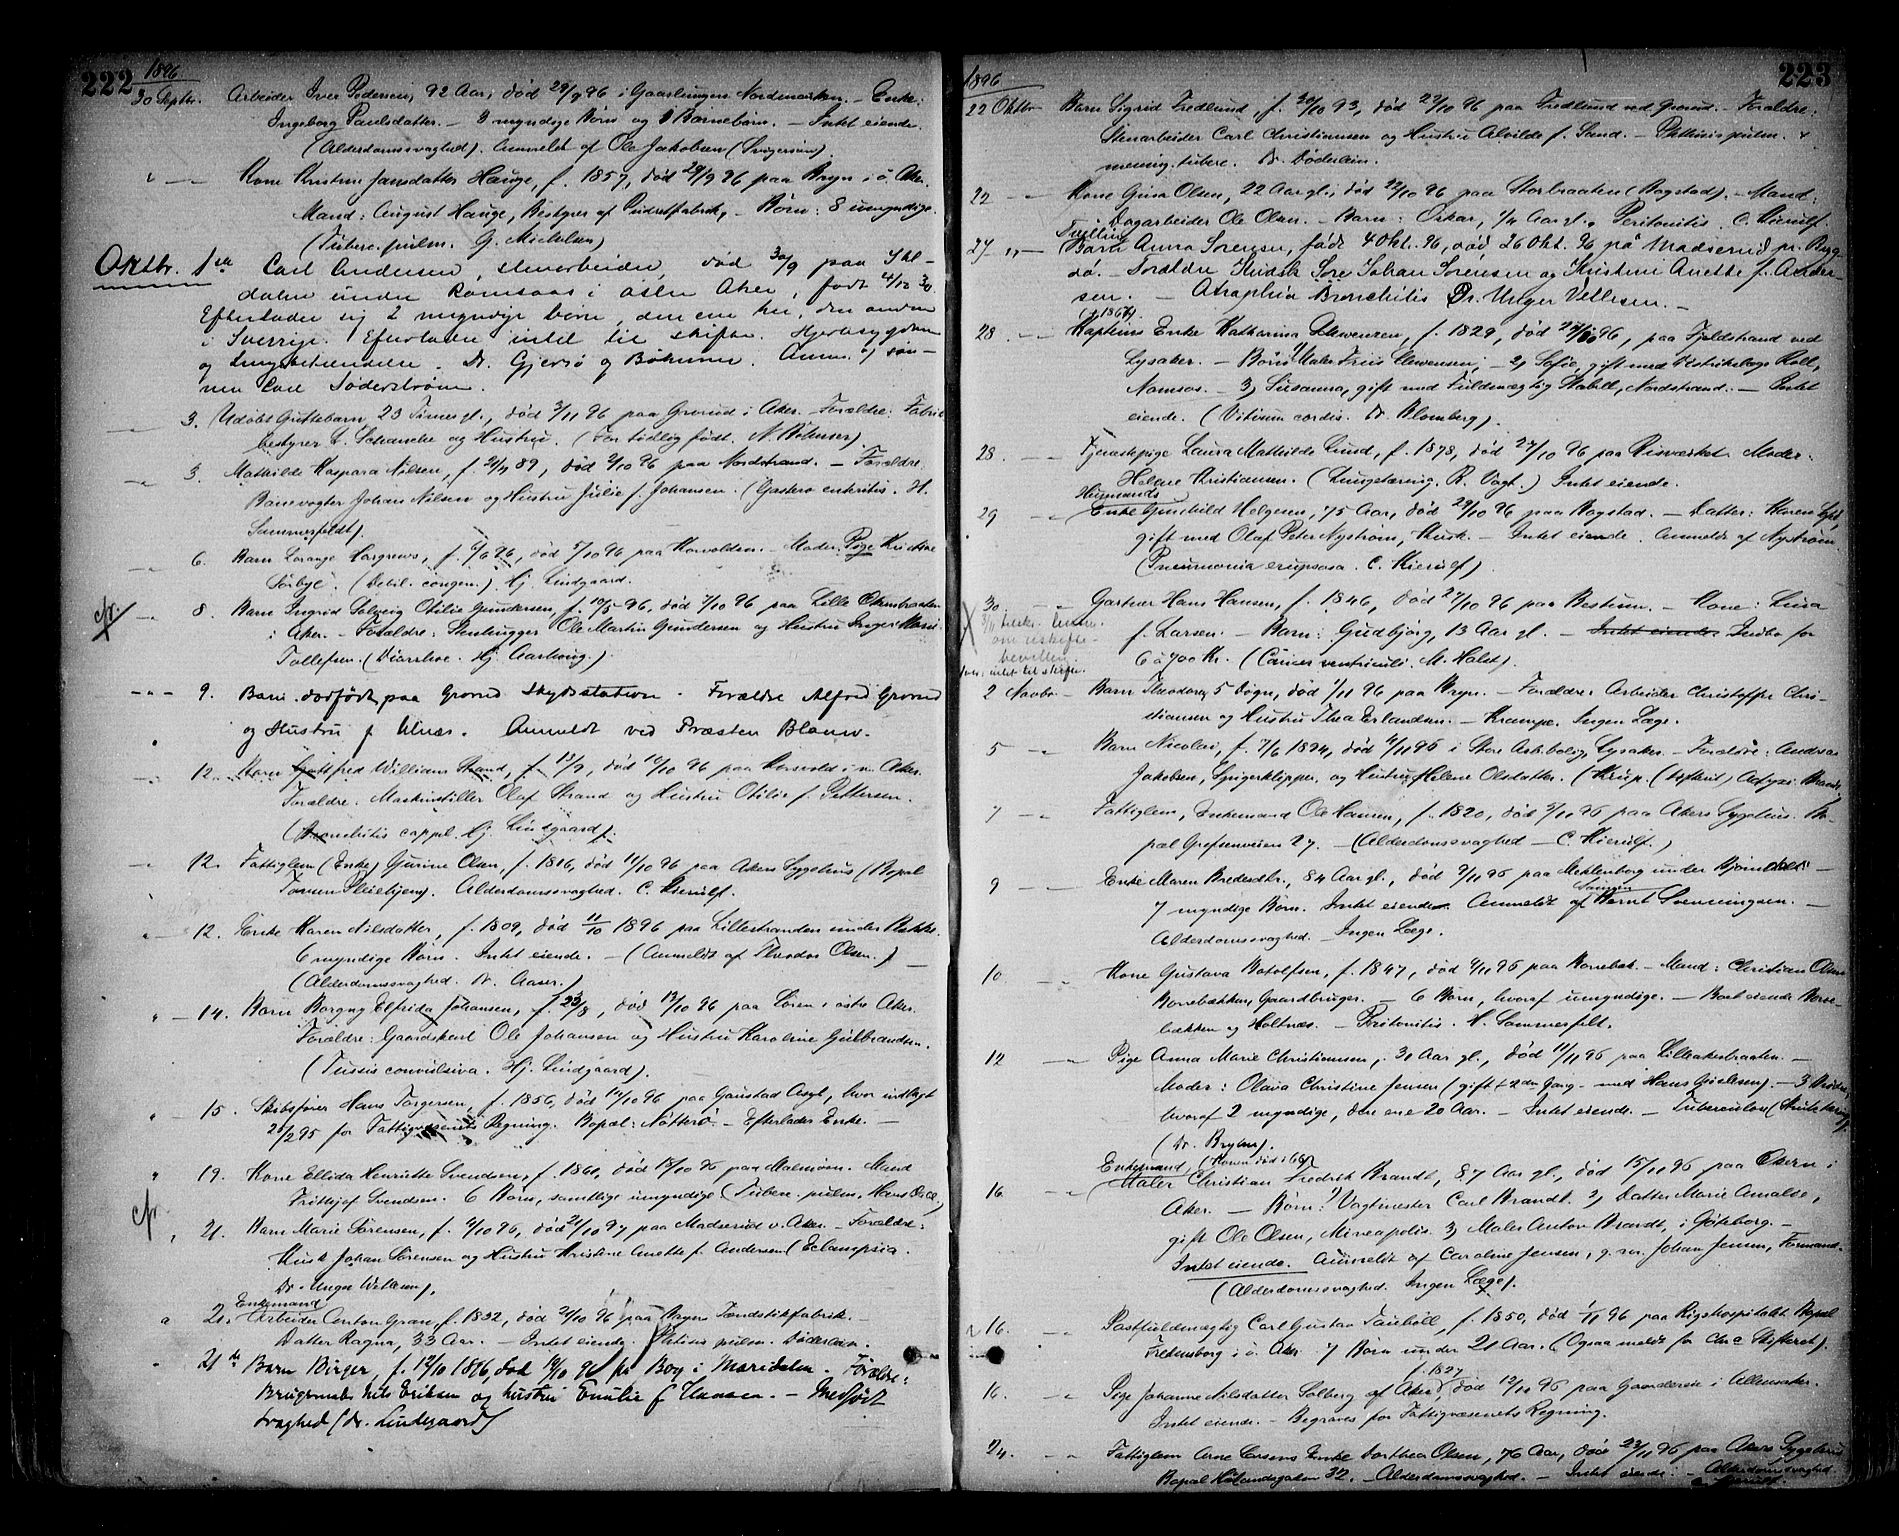 222
1896
30 Septbr. Arbeider Iver Pedersen, 92 Aar, død 28/9 96 i Gaaslungen Nordmarken. – Enke:
Ingeborg Paulsdatter. – 3 myndige Børn og Barnebørn. – Intet eiende.
(Alderdomssvaghed). Anmeldt af Ole Jakobsen (Svigersøn).
" — Kone Kristine Jansdatter Hauge, f. 1857, død 29/9 96 paa Bryn i ø. Aker.
Mand: August Hauge, Bestyrer af Pudretfabrik, – Børn: 8 umyndige.
(Tuberc. pulm. G. Michelsen)
Oktbr. 1ste Carl Andersen, stenarbeider, død 30/9 paa
dalen under Ramsaas i østre Aker, født 4/12 30.
Efterlader sig 2 myndige børn, den ene her, den anden
i Sverrige. Efterlader intet til skifte. Hjertesygdom
og Lungebetændelse. Dr. Gjersø og Bøhmer. Anm. af søn-
nen Carl Søderstrøm.
3. Udøbt Guttebarn 23 Timer gl., død 2/11 96 paa Grorud i Aker. Forældre: Fabrik
bestyrer L. Schanche og Hustru. (For tidlig født. N. Bøhmer)
3. Mathilde Kaspara Nilsen, f. 29/4 89, død 2/10 96 paa Nordstrand. – Forældre
Banevogter Johan Nilsen og Hustru Julie f. Johansen. (Gastero enteritis. H.
Sommerfeldt).
6. Barn Lorange Hargrews, f. 9/6 96, død 5/10 96 paa Korvolden. – Moder: Pige Kristine
Sørbye. (Debil. congen.) Hj. Lindgaard.
cfr. 8. Barn Ingrid Solveig Otilie Gundersen, f. 10/5 96, død 7/10 96 paa Lille Økernbraaten
i Aker. – Forældre: Stenhugger Ole Martin Gundersen og Hustru Inger Marie
Tollefsen. (Diarrhoe. Hj. Aarhoug.)
9. Barn dødfødt paa Grorud Skydsstation. Forældre Alfred Grorud
og Hustru f Ulnæs. Anmeldt ved Præsten Blauw.
12. Barn Gottfred William Strand, f. 13/9, død 10/10 96 paa Korsvold i v. Aker.
Forældre: Maskinstiller Olaf Strand og Hustru Otilie f. Pettersen.
(Bronchitis cappel. Hj. Lindgaard).
12. Fattiglem (Enke) Gurine Olsen, f. 1816, død 11/10 96 paa Akers Sygehus (Bopæl
Tonsen Pleiehjem). Alderdomssvaghed. C. Kierulf.
12. Enke Karen Nilsdatter, f. 1809, død 11/10 1896 paa Lillestranden under Bække.
6 myndige Børn. Intet eiende. – (Anmeldt af Theodor Olsen.) —
(Alderdomssvaghed. Dr. Aaser.)
14. Barn Borgny Elfrida Johansen, f. 23/8, død 13/10 96 paa Løren i østre Aker.
Forældre: Gaardskarl Ole Johansen og Hustru Karoline Gulbrandsen.
(Tussis convulsiva. Hj. Lindgaard).
15. Skibsfører Hans Torgersen, f. 1856, død 14/10 96 paa Gaustad Asyl, hvor indlagt
28/2 95 for Fattigvæsenets Regning. Bopæl: Nøtterø – Efterlader Enke. —
19. Kone Ellida Henriette Svendsen, f. 1860, død 18/10 96 paa Malmøen. Mand
Fritjef Svendsen. 6 Børn, samtlige umyndige (Tuberc. pulm.
cfr. 21. Barn Marie Sørensen, f. 4/10 96, død 21/10 97 paa Madserud v. Aker. – Forældre:
Kusk Johan Sørensen og Hustru Kristine Anette f. Andersen (Eclampsia.
Dr. Unger Vetlesen),
Enkemand
21. Arbeider Anton Gran, f. 1832, død 21/10 96 paa Bryn Tændstikfabrik.
Datter Ragna, 33 Aar. – Intet eiende. Phtisis pulm. Døderlein.
21de Barn Birger, f. 12/10 1896, død 19/10 96 på Bog i Maridalen. Forældre:
Brugsmand Nils Eriksen og hustru Emilie f Hansen. – Medfødt
svaghed (Dr. Lindgaard)
223
1896
22 Oktbr. Barn Sigrid Fredlund, f. 30/10 93, død 22/10 96 paa Fredlund ved Grorud. – Forældre:
Stenarbeider Carl Christiansen og Hustru Alvilde f. Sund. – Phthisis pulm. &
mening. tuberc. Dr. Døderlein.
22 — Kone Gina Olsen, 22 Aar gl., død 22/10 96 paa Storbraaten (Bogstad). – Mand:
Dagarbeider Ole Olsen. – Barn: Oskar, 1/4 Aar gl. Peritonitis. C. Kierulf.
Tvilling
27 — Barn Anna Sørensen, født 4 Okt. 96, død 26 Okt. 96 på Madserud pr. Byg-
dø. – Forældre Kudsk Johan Sørensen og Kristine Anette f. Ander-
sen. – Atraphia Bronchitis Dr. Unger Vetlesen. –
28. — Kapteins Enke Katharina Stevensen, f. 1829, død 96, paa Fjeldstrand ved
Lysaker. – Børn: 1) Maler Friis Stevensen; 2) Sofie, gift med Distriktslæge Holl,
Namsos. – 3) Susanna, gift med Fuldmægtig Stabell, Nordstrand. – Intet
eiende. (Vitium cordis. Dr. Blomberg).
28. — Tjenestepige Laura Mathilde Lund, f. 1878, død 27/10 96 paa Risværket. Moder:
Helene Kristiansen. (Lungetæring. R. Vogt.) Intet eiende.
Husmands
29 — Enke Gunhild Helgesen, 75 Aar, død 29/10 96 paa Bogstad. – Datter: Karen
gift med Olaf Peter Nystrøm, Kusk. – Intet eiende. Anmeldt af Nystrøm.
(Pneumonia crupøsa. C. Kierulf)
30. Gartner Hans Hansen, f. 1846, død 27/10 96 paa Bestum. – Kone: Lina
f. Larsen. – Barn: Gudbjørg, 13 Aar gl. – Intet eiende. Indbo for
6 à 700 Kr. (Cancer ventriculi. M. Holst).
om uskifte-
bevilling.
intet til skifte.
2 Novbr. — Barn Theodora, 5 Døgn, død 1/11 96 paa Bryn. – Forældre Arbeider Christoffer Chri-
stiansen og Hustru Thea Erlandsen. – Krampe. Ingen Læge.
5 — Barn Nicolai, f. 7/6 1894, død 4/11 96 i Store Lysaker. – Forældre: Andreas
Jakobsen, Spigerklipper, og Hustru Helene Olsdatter. (Krup.
7 — Fattiglem, Enkemand Ole Hansen, f. 1820, død 5/11 96 paa Akers Sygehus. Bo-
pæl Grefsenveien 27. – (Alderdomssvaghed – C. Kierulf.)
9 — Enke Maren Bredesdtr., 84 Aar gl., død 9/11 96 paa Mecklenborg under
7 myndige Børn. Intet eiende. Anmeldt af Sønnen Bernt Svenningsen. –
Alderdomssvaghed. – Ingen Læge.
10 — Kone Gustava Botolfsen, f. 1847, død 9/11 96 paa Borrebæk. – Mand: Christian Olsen
Borrebækken, Gaardbruger. – 6 Børn, hvoraf umyndige. – Boet eiende Borre-
bækken og Holtnæs. – Peritonitis. H. Sommerfelt.
12 — Pige Anna Marie Christiansen, 30 Aar gl., død 11/11 96 paa Lilleakerbraaten. –
Moder: Olava Christine Jensen (gift 2den Gang med Hans Gislesen). – 3 Brødre,
hvoraf 2 myndige, den ene 20 Aar. – Intet eiende. – Tuberculos
(Dr. Bryhn).
Enkemand, (Konen død i 66)
16. — Maler Christian Fredrik Brandt, 87 Aar gl., død 15/11 96 paa Økern i
Aker. – Børn: 1) Vagtmester Carl Brandt. 2) Datter Marie Amalie,
gift Ole Olsen, Mineapolis. 3) Maler Anton Brandt, i Gøteborg. –
Intet eiende. Anmeldt af Caroline Jensen, g. m. Johan Jensen, Formand.
(Alderdomssvaghed. Ingen Læge).
16. — Postfuldmægtig Carl Gustav Taubøll, f. 1850, død 1/11 96 paa Rigshospitalet. Bopæl
Fredensborg i ø. Aker. 7 Børn under 21 Aar. (Ogsaa meldt for Chra Skifteret).
f. 1827
16. — Pige Johanne Nilsdatter Solberg af Aker, død 12/11 96 paa Gaarderud i Ullensaker.
Intet eiende. – Begraves for Fattigvæsenets Regning.
24. — Fattiglem Arne Larsens Enke Dorthea Olsen, 76 Aar, død 23/11 96 paa Akers Sygehus
Bopæl 32. – Alderdomssvaghed. – Intet eiende. – Alderdomssvaghed
C. Kierulf.